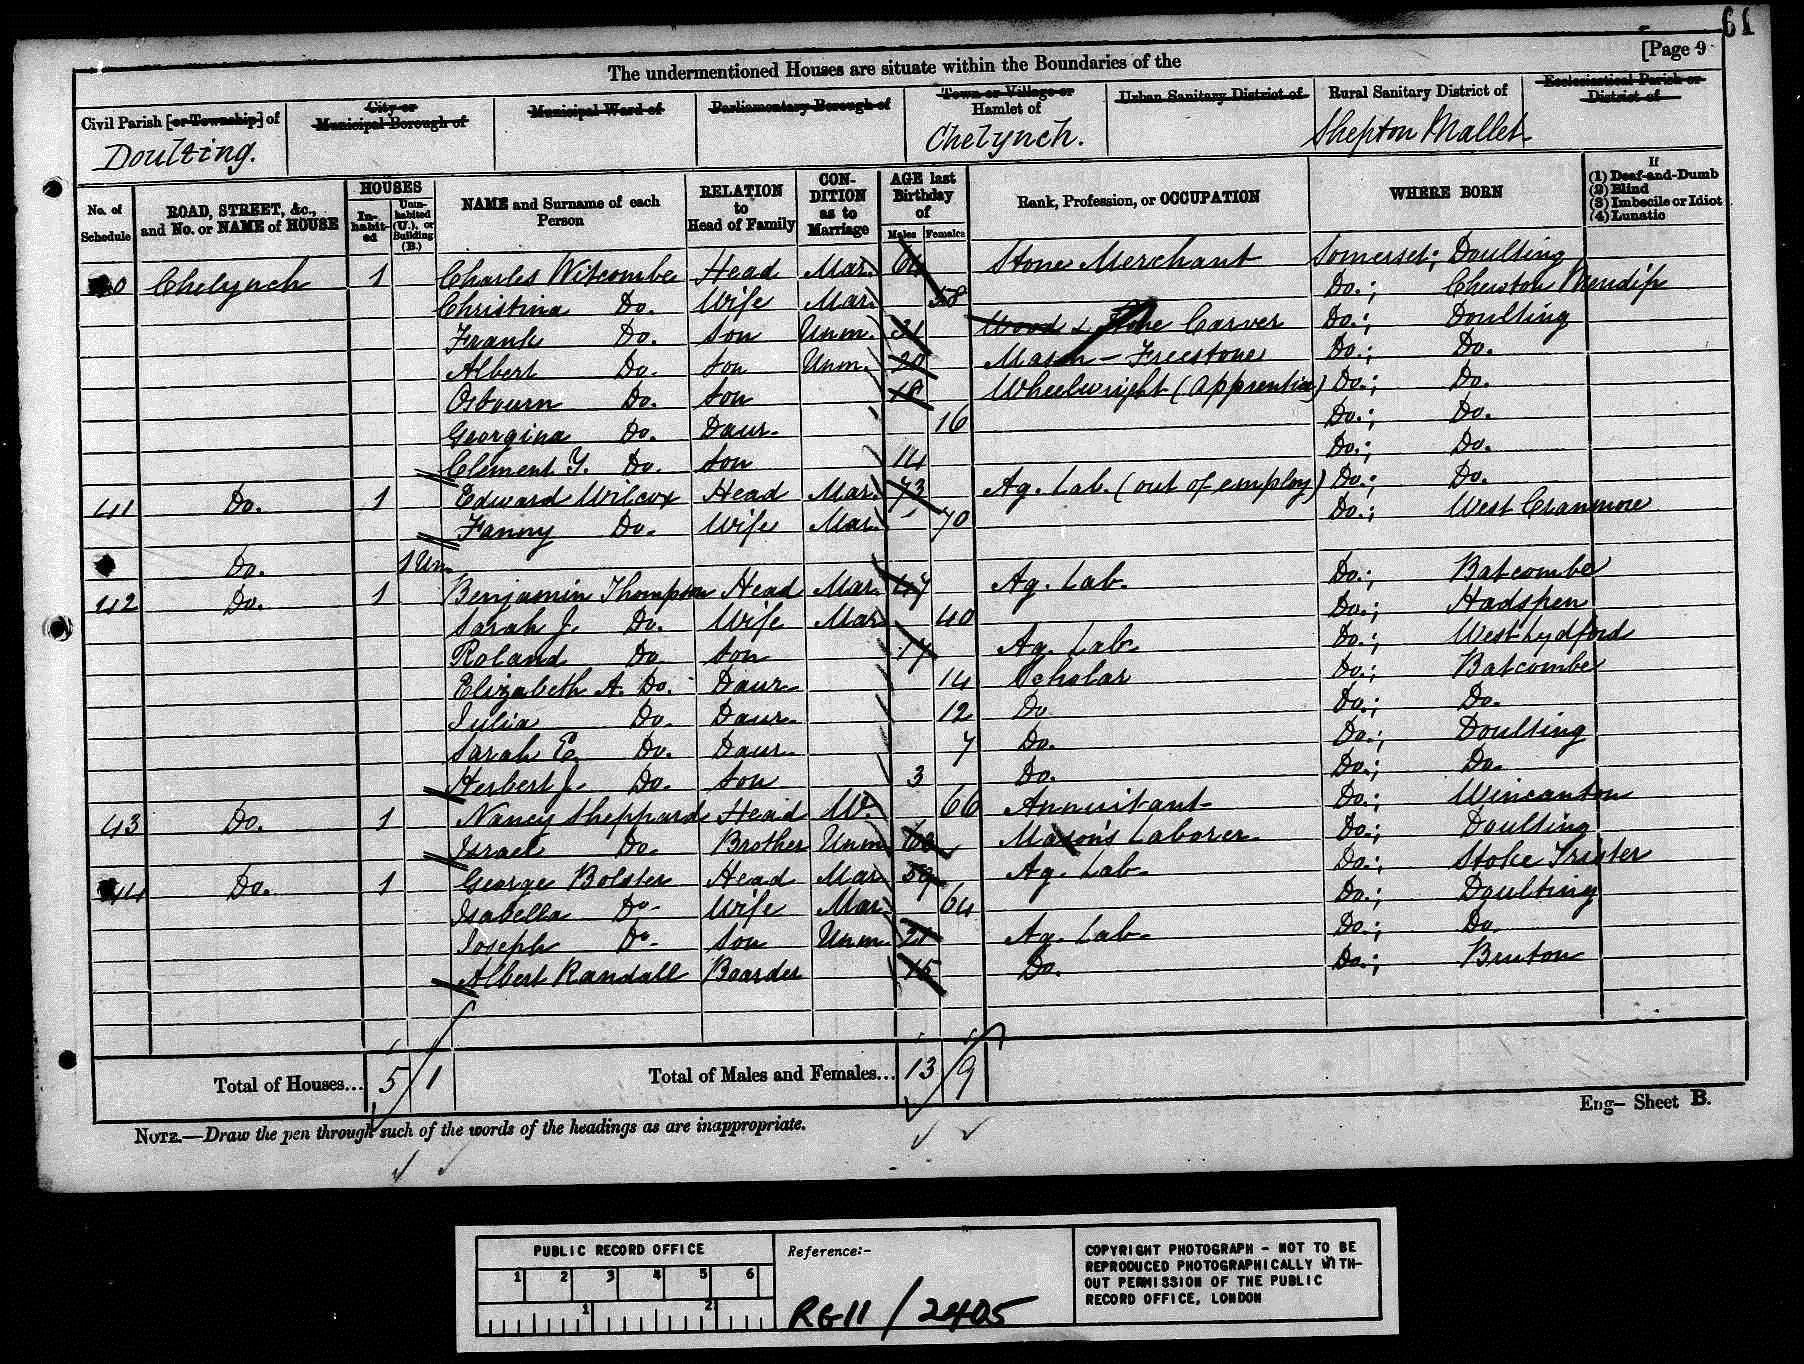 61
[Page 9
The undermentioned Houses are situate within the Boundaries of the
Civil Parish [or Township] of Doulting.
City or Municipal Borough of
Municipal Ward of
Parliamentary Borough of
Town or Village or Hamlet of Chelynch.
Urban Sanitary District of
Rural Sanitary District of Shepton Mallet
Ecclesiastical Parish or District of
No. of Schedule
ROAD, STREET, &c., and No. or NAME of HOUSE
HOUSES
In-habit-ed
Unin-habited (U.), or Building (B.)
NAME and Surname of each Person
RELATION to Head of Family
CON-DITION as to Marriage
AGE last Birthday of
Males Females
Rank, Profession, or OCCUPATION
WHERE BORN
If
(1) Deaf-and-Dumb
(2) Blind
(3) Imbecile or Idiot
(4) Lunatic
40 Chelynch 1 Charles Witcombe Head Mar. Stone Merchant Somerset; Doulting
Christina Do. Wife Mar. 58 Do.; Chewton Mendip
Frank Do. Son Unm. 31 Wood & Stone Carver Do.; Doulting
Albert Do. Son Unm. 20 Mason - Freestone Do.; Do.
Osbourn Do. Son 18 Wheelwright (Apprentice) Do.; Do.
Georgina Do. Daur. 16 Do.; Do.
Clement Y. Do. Son 14 Do.; Do.
41 Do. 1 Edward Wilcox Head Mar. 73 Ag. Lab. (out of employ) Do.; Do.
Fanny Do. Wife Mar. 70 Do.; West Cranmore
Do. 1 Un.
42 Do. 1 Benjamin Thompson Head Mar. 47 Ag. Lab. Do.; Batcombe
Sarah J. Do. Wife Mar. 40 Do.; Hadspen
Roland Do. Son 17 Ag. Lab. Do.; West Lydford
Elizabeth A. Do. Daur. 14 Scholar Do.; Batcombe
Julia Do. Daur. 12 Do. Do.; Do.
Sarah E. Do. Daur. 7 Do. Do.; Doulting
Herbert J. Do. Son 3 Do. Do.; Do.
43 Do. 1 Nancy Sheppard Head W. 66 Annuitant Do.; Wincanton
Israel Do. Brother Unm. 60 Mason's Laborer Do.; Doulting
44 Do. 1 George Bolster Head Mar. 59 Ag. Lab. Do.; Stoke Trister
Isabella Do. Wife Mar. 64 Do.; Doulting
Joseph Do. Son Unm. Ag. Lab. Do.; Do.
Albert Randall Boarder 15 Do. Do.; Bruton
Total of Houses... 5 1 Total of Males and Females... 13 9
Eng- Sheet B.
NOTE.—Draw the pen through such of the words of the headings as are inappropriate.
PUBLIC RECORD OFFICE
1 2 3 4 5 6
1 2
Reference:-
RG11/2405
COPYRIGHT PHOTOGRAPH - NOT TO BE
REPRODUCED PHOTOGRAPHICALLY WITH-
OUT PERMISSION OF THE PUBLIC
RECORD OFFICE, LONDON